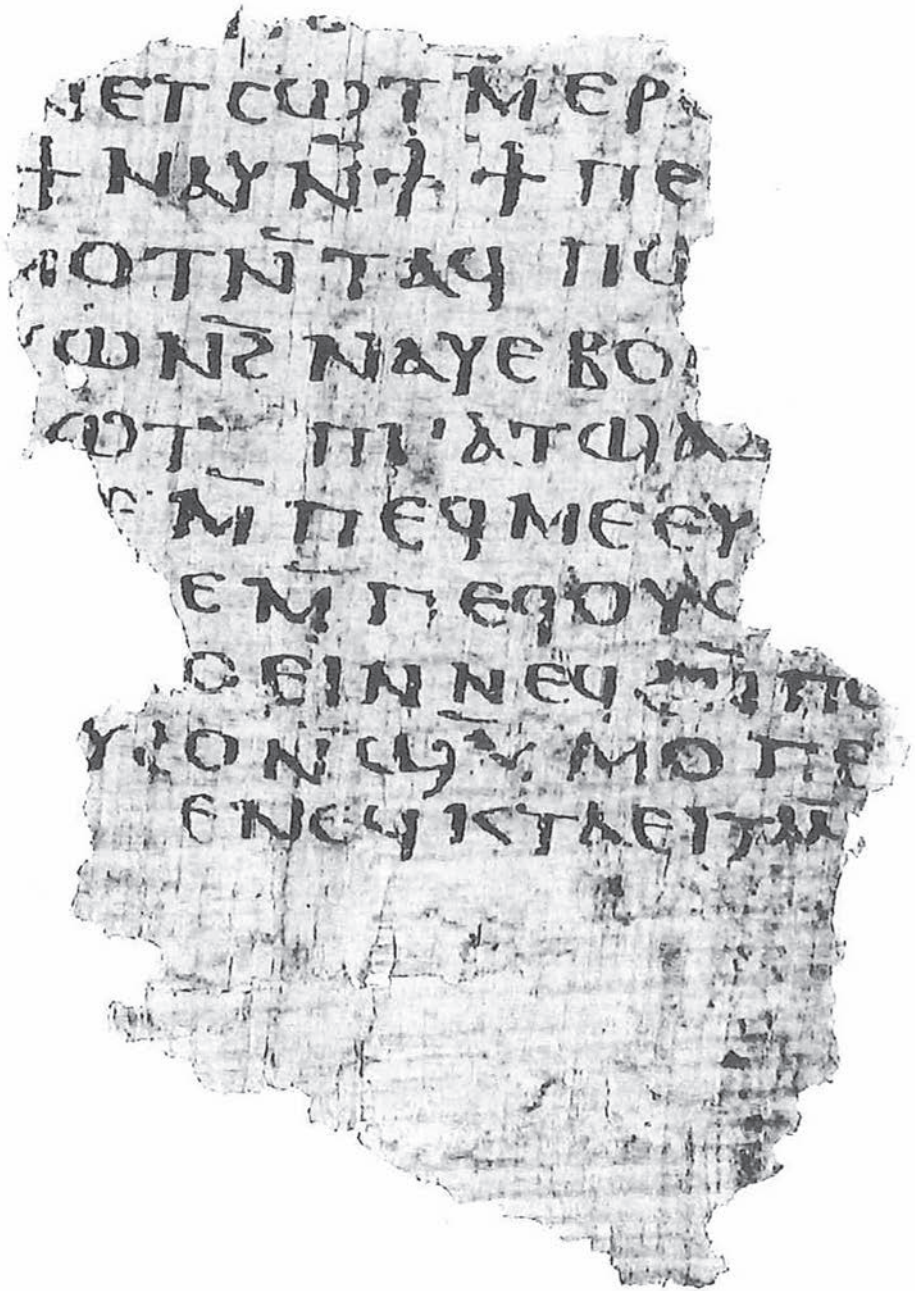 ⲛⲉⲧⲥⲱⲧⲙ̄ⲉⲣ
ϯⲛⲁⲩⲛ̄ϯϯⲡⲉ
ⲟⲧⲛ̄ⲧⲁϥⲡ
ⲱⲛϩ̄ⲛⲁⲩⲉⲃⲟ
ⲱⲧ' ⲡⲓ'ⲁⲧϣⲁ
ⲉⲙ̄ⲡⲉϥⲙⲉⲉⲩ
ⲉⲙ̄ⲡⲉϥⲟⲩ
ⲟⲉⲓⲛⲛⲉϥ
ⲟⲛϣⲙ̄ⲙⲟⲡⲉ
ⲉⲛⲉϥⲕⲧⲁⲉⲓⲧ